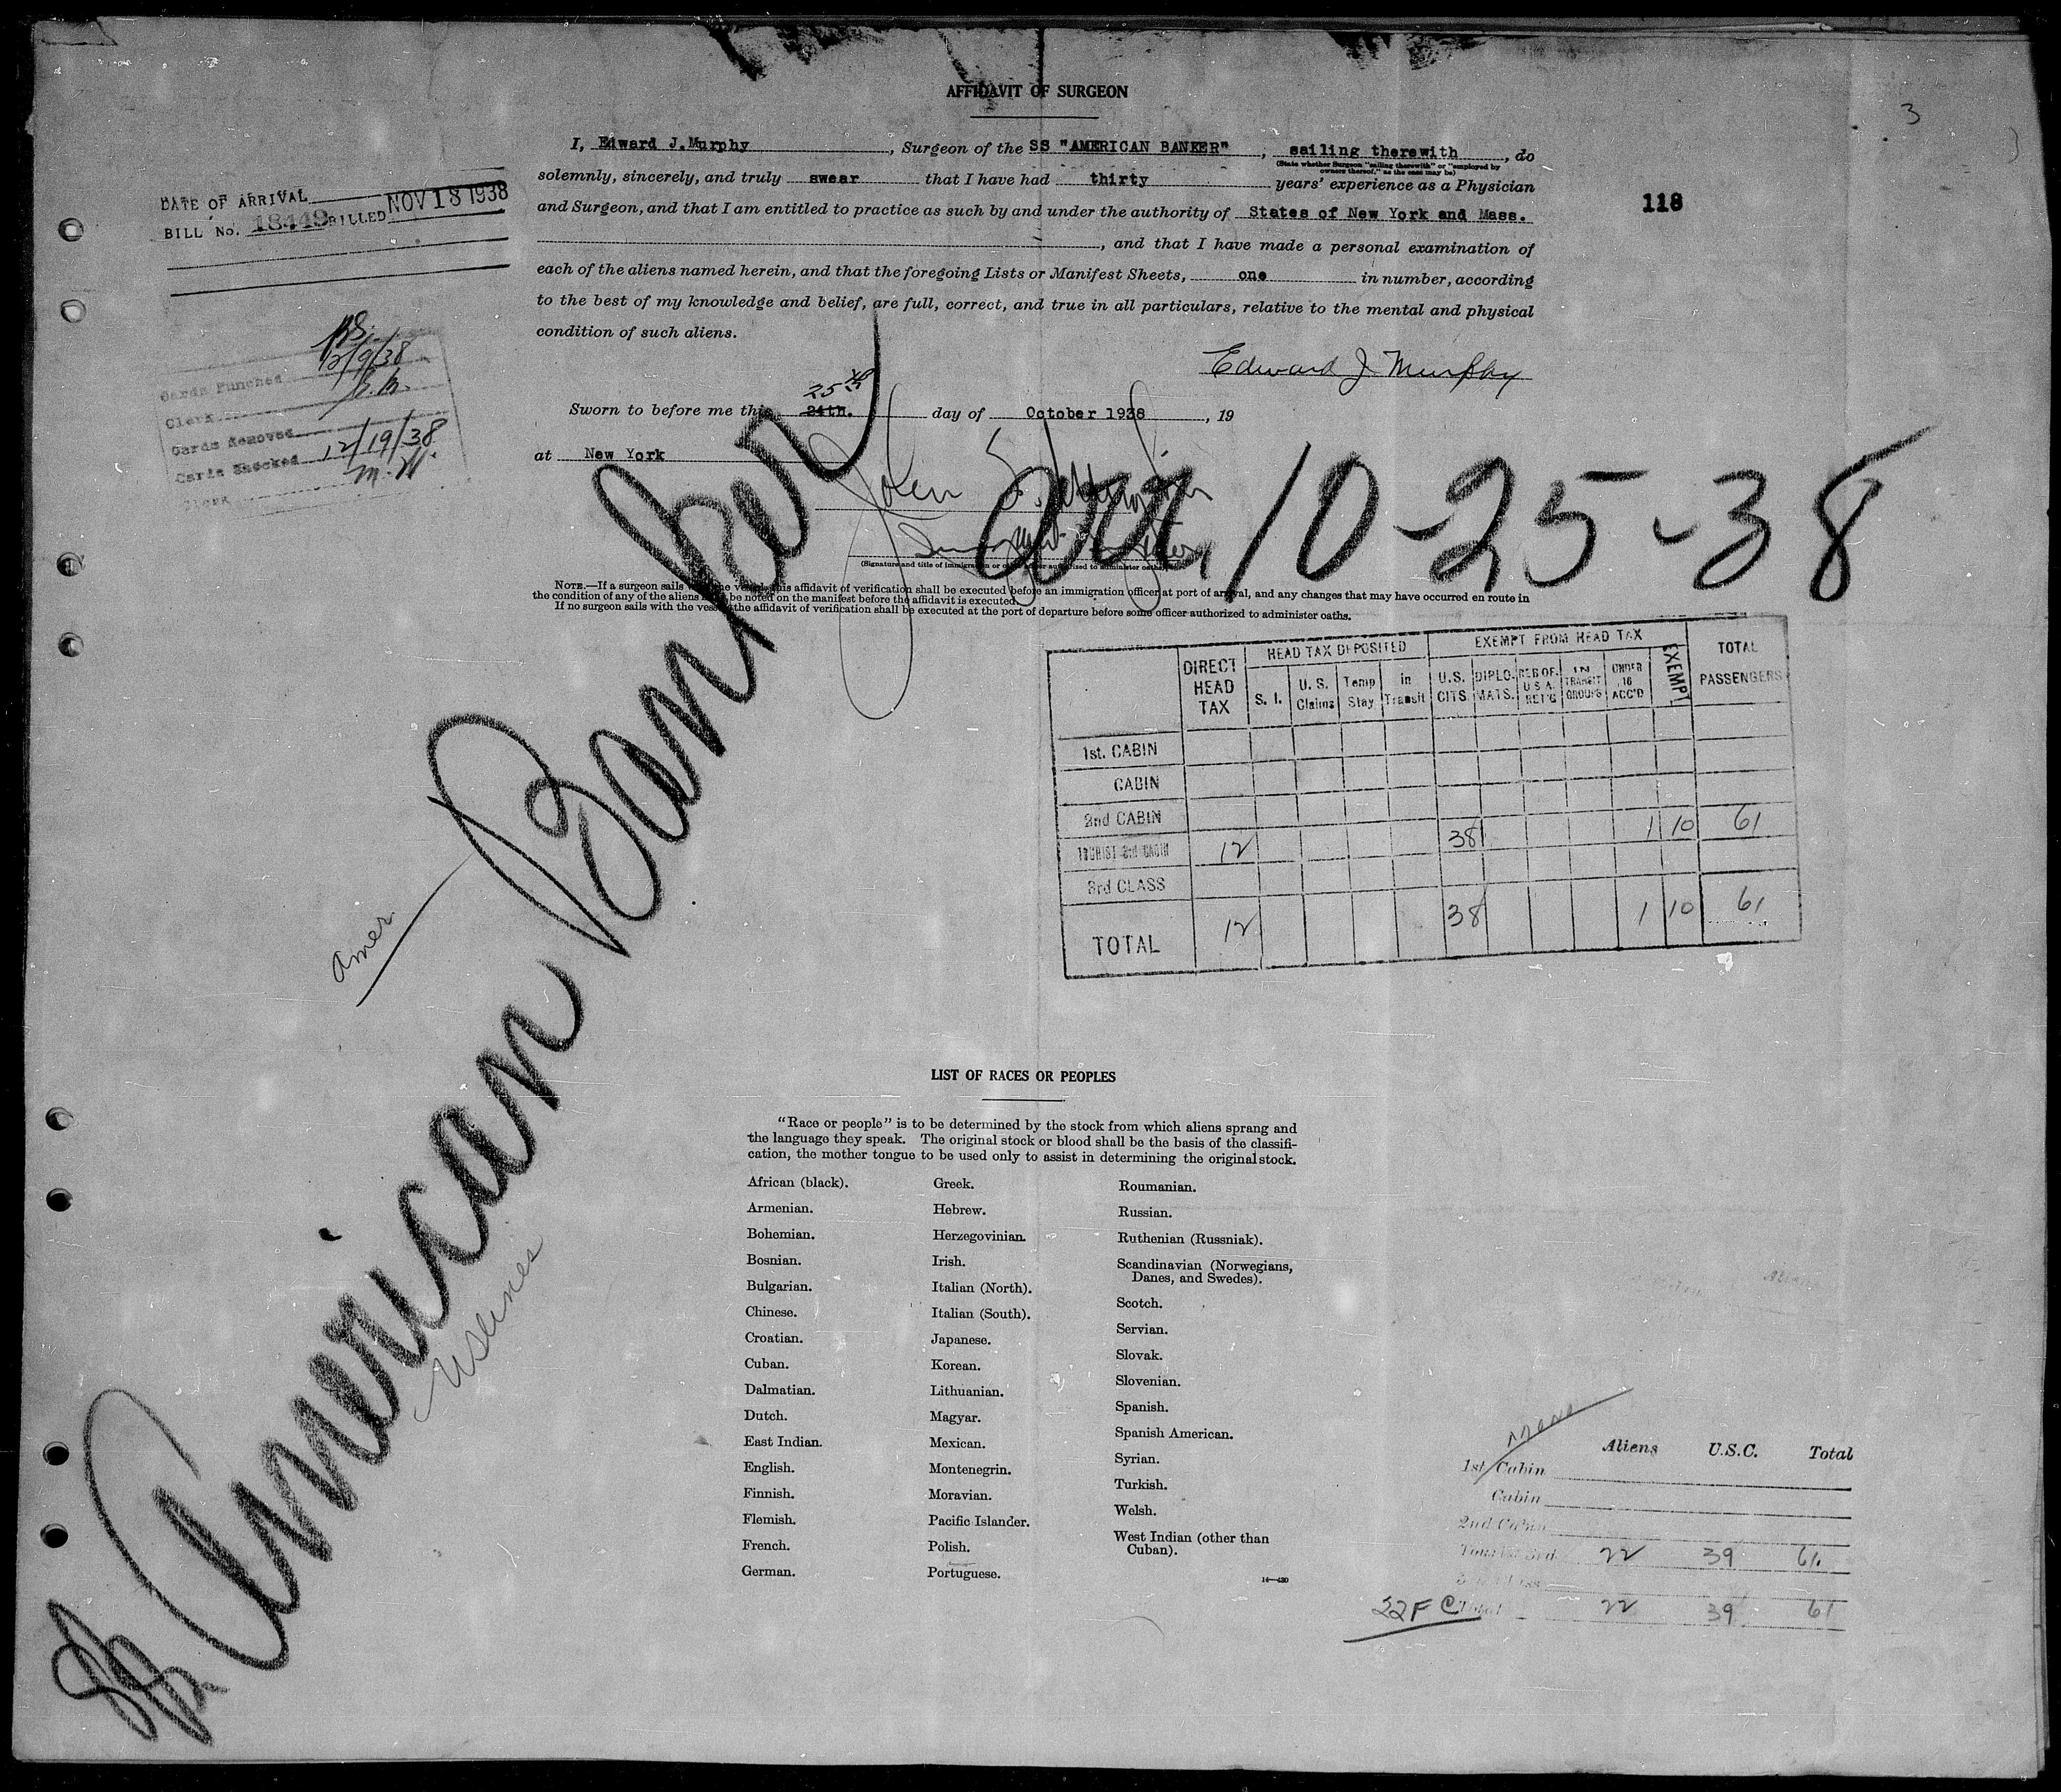 AFFIDAVIT OF SURGEON
3
I, Edward J. Murphy, Surgeon of the SS "AMERICAN BANKER", sailing therewith, do
(State whether Surgeon "sailing therewith" or "employed by
owners thereof," as the case may be)
solemnly, sincerely, and truly swear that I have had thirty years' experience as a Physician
and Surgeon, and that I am entitled to practice as such by and under the authority of States of New York and Mass.
, and that I have made a personal examination of
each of the aliens named herein, and that the foregoing Lists or Manifest Sheets, one in number, according
to the best of my knowledge and belief, are full, correct, and true in all particulars, relative to the mental and physical
condition of such aliens.
Edward J Murphy
118
DATE OF ARRIVAL
BILL No. 18449 BILLED NOV 18 1938
12/9/38
Cards Punched
Clerk
Cards Removed
Cards Checked 12/19/38
Clerk M.W.
25th
Sworn to before me this 24th. day of October 1938, 19
at New York
John
arr. 10-25-38
(Signature and title of immigration or other officer authorized to administer oaths)
NOTE.—If a surgeon sails with the vessel, this affidavit of verification shall be executed before an immigration officer at port of arrival, and any changes that may have occurred en route in
the condition of any of the aliens must be noted on the manifest before the affidavit is executed.
If no surgeon sails with the vessel, the affidavit of verification shall be executed at the port of departure before some officer authorized to administer oaths.
SS American Banker
Amer
USLines
DIRECT HEAD TAX
HEAD TAX DEPOSITED
EXEMPT FROM HEAD TAX
EXEMPT
TOTAL PASSENGERS
S. I. U. S. Claims Temp Stay in Transit U.S. CITS. DIPLO. MATS. RES OF. U S A. RET'G IN TRANSIT GROUPS UNDER 16 ACC'D
1st. CABIN
CABIN
2nd CABIN
TOURIST 3rd CABIN 12 38 1 10 61
3rd CLASS
TOTAL 12 38 1 10 61
LIST OF RACES OR PEOPLES
"Race or people" is to be determined by the stock from which aliens sprang and
the language they speak. The original stock or blood shall be the basis of the classifi-
cation, the mother tongue to be used only to assist in determining the original stock.
African (black).
Armenian.
Bohemian.
Bosnian.
Bulgarian.
Chinese.
Croatian.
Cuban.
Dalmatian.
Dutch.
East Indian.
English.
Finnish.
Flemish.
French.
German.
Greek.
Hebrew.
Herzegovinian.
Irish.
Italian (North).
Italian (South).
Japanese.
Korean.
Lithuanian.
Magyar.
Mexican.
Montenegrin.
Moravian.
Pacific Islander.
Polish.
Portuguese.
Roumanian.
Russian.
Ruthenian (Russniak).
Scandinavian (Norwegians,
Danes, and Swedes).
Scotch.
Servian.
Slovak.
Slovenian.
Spanish.
Spanish American.
Syrian.
Turkish.
Welsh.
West Indian (other than
Cuban).
14—430
Aliens U.S.C. Total
1st Cabin
Cabin
2nd Cabin
Tourist 3rd 22 39 61
3rd Class
Total 22 39 61
22F C